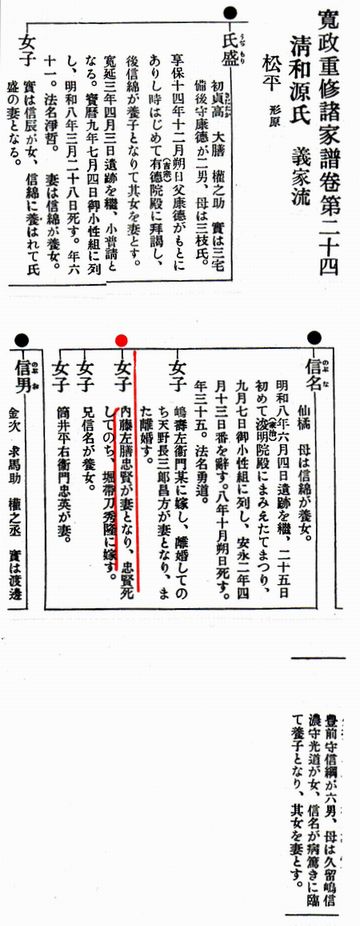 寛政重修諸家譜巻第二十四
清和源氏 義家流
松平 形原
氏盛
うぢもり
初貞高 大膳 権之助 實は三宅
さだたか
備後守康德が二男、母は三枝氏。
享保十四年十二月朔日父康德がもとに
ありし時はじめて有德院殿に拜謁し、
(吉宗)
後信綿が養子となりて其女を妻とす。
寛延三年四月三日遺跡を繼、小普請と
なる。寶暦九年七月四日御小性組に列
し、明和八年三月二十八日死す。年六
十一。法名淨哲。 妻は信綿が養女。
女子
實は信辰が女、信綿に養はれて氏
盛の妻となる。
信名
のぶな
仙橘 母は信綿が養女。
明和八年六月四日遺跡を繼、二十五日
初めて浚明院殿にまみえたてまつり、
(家治)
九月七日御小性組に列し、安永二年四
月十三日番を辭す。八年十月朔日死す。
年三十五。法名勇道。
女子
嶋壽左衞門某に嫁し、離婚しての
ち天野長三郎昌方が妻となり、ま
た離婚す。
女子
内藤左膳忠賢が妻となり、忠賢死
してのち、堀帶刀秀隆に嫁す。
女子
兄信名が養女。
女子
筒井平右衞門忠英が妻。
信男
のぶお
金次 求馬助 權之丞 實は渡邊
豊前守信綱が六男、母は久留嶋信
濃守光道が女、信名が病篤きに臨
て養子となり、其女を妻とす。